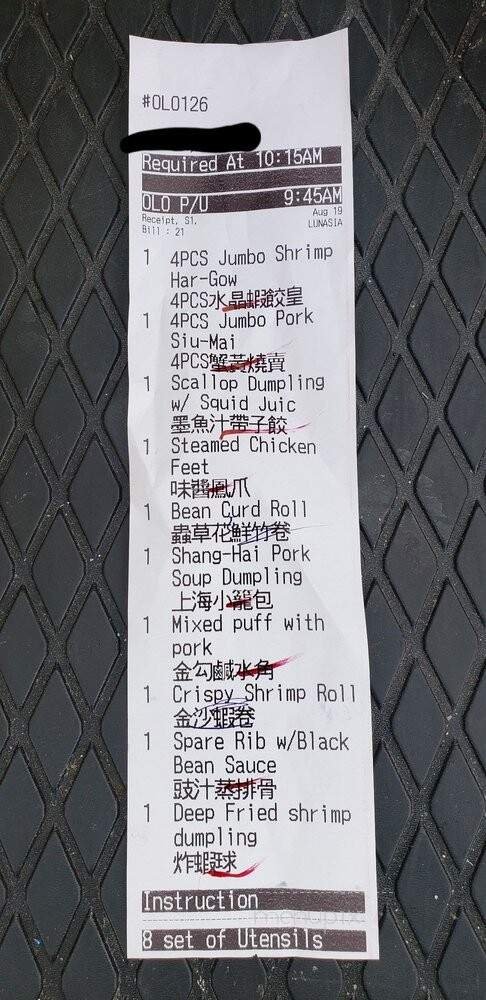 #OLO126
Required At 10:15AM
OLO P/U 9:45AM
Receipt, S1, Aug 19
Bill : 21 LUNASIA
1 4PCS Jumbo Shrimp
Har-Gow
4PCS水晶蝦餃皇
1 4PCS Jumbo Pork
Siu-Mai
4PCS蟹黃燒賣
1 Scallop Dumpling
w/ Squid Juic
墨魚汁帶子餃
1 Steamed Chicken
Feet
味醬鳳爪
1 Bean Curd Roll
蟲草花鮮竹卷
1 Shang-Hai Pork
Soup Dumpling
上海小籠包
1 Mixed puff with
pork
金勾鹹水角
1 Crispy Shrimp Roll
金沙蝦卷
1 Spare Rib w/Black
Bean Sauce
豉汁蒸排骨
1 Deep Fried shrimp
dumpling
炸蝦球
Instruction
8 set of Utensils